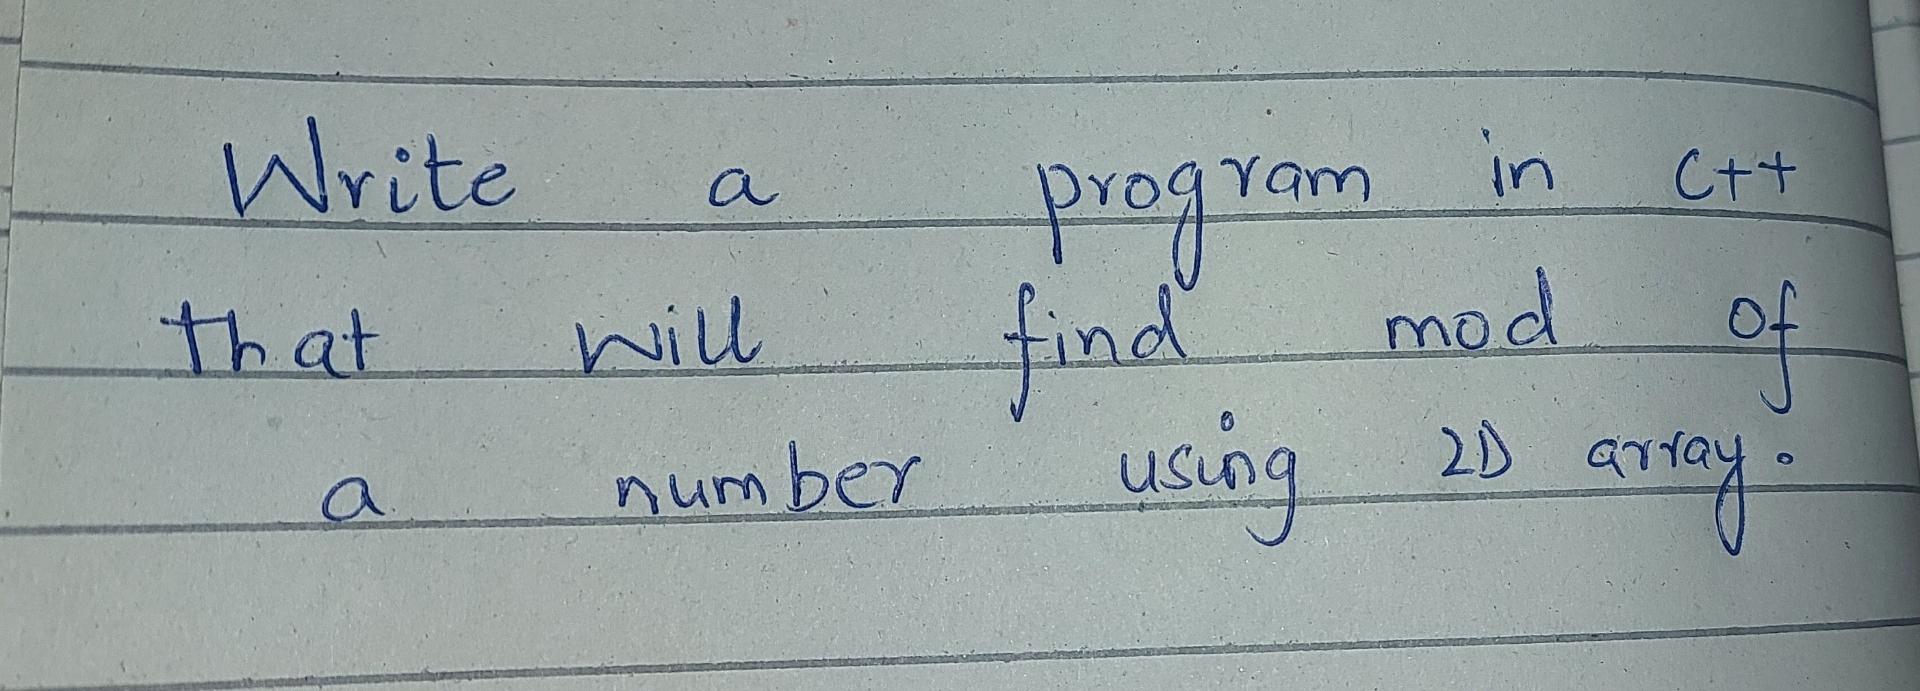 Write a program in C++
that will find mod of
a number using 2D array.